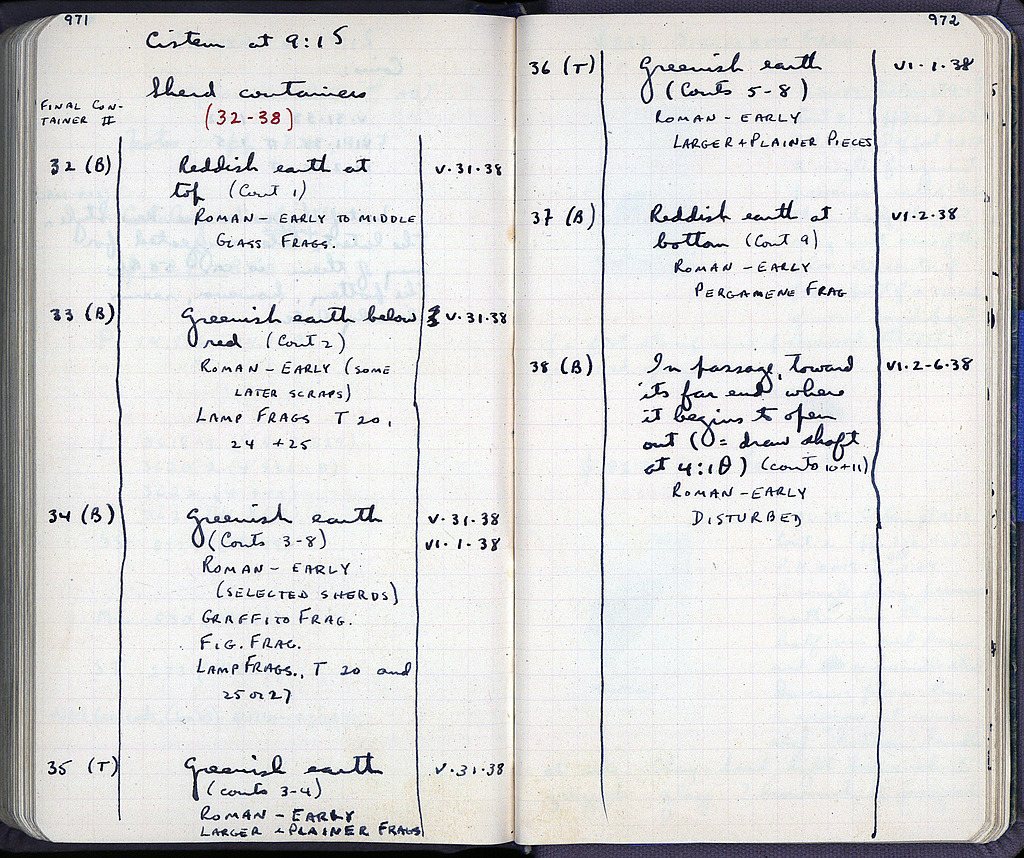 971
Cistern at 9:15
Sherd containers
FINAL CON-
TAINER II
(32-38)
32 (B) Reddish earth at V·31·38
top (Cont 1)
ROMAN - EARLY TO MIDDLE
GLASS FRAGS.
33 (B) Greenish earth below V·31·38
red (Cont 2)
ROMAN - EARLY (SOME
LATER SCRAPS)
LAMP FRAGS T 20,
24 + 25
34 (B) Greenish earth V·31·38
(Conts 3-8) VI·1·38
ROMAN - EARLY
(SELECTED SHERDS)
GRAFFITO FRAG.
FIG. FRAG.
LAMP FRAGS., T 20 and
25 or 27
35 (T) Greenish earth V·31·38
(conts 3-4)
ROMAN - EARLY
LARGER + PLAINER FRAGS
972
36 (T) Greenish earth VI·1·38
(Conts 5-8)
ROMAN - EARLY
LARGER + PLAINER PIECES
37 (B) Reddish earth at VI·2·38
bottom (Cont 9)
ROMAN - EARLY
PERGAMENE FRAG
38 (B) In passage, toward VI·2-6·38
its far end where
it begins to open
out (= draw shaft
at 4:10) (conts 10+11)
ROMAN - EARLY
DISTURBED